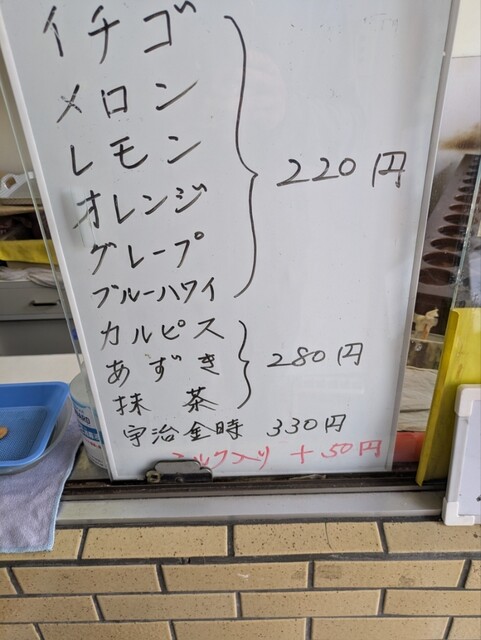 イチゴ
メロン
レモン
オレンジ
グレープ
ブルーハワイ
220円
カルピス
あずき
抹茶
280円
宇治金時 330円
ミルク入り +50円